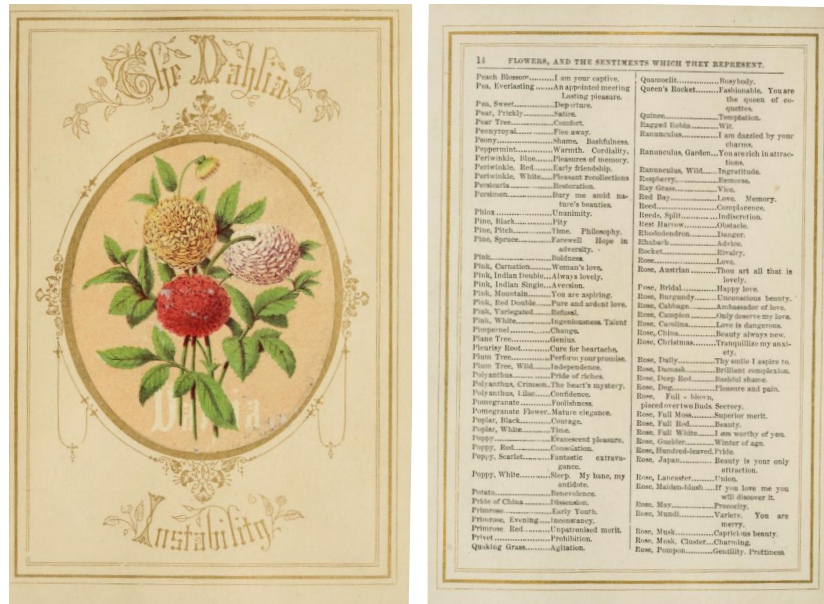 The Dahlia
Dahlia
Instability
14 FLOWERS, AND THE SENTIMENTS WHICH THEY REPRESENT.
Peach Blossom..........I am your captive.
Pea, Everlasting .......An appointed meeting
Lasting pleasure.
Pea, Sweet..............Departure.
Pear, Prickly............Satire.
Pear Tree................Comfort.
Pennyroyal..............Flee away.
Peony....................Shame. Bashfulness.
Peppermint.............Warmth. Cordiality.
Periwinkle, Blue.......Pleasures of memory.
Periwinkle, Red.......Early friendship.
Periwinkle, White.....Pleasant recollections
Persicaria ..............Restoration.
Persimon................Bury me amid na-
ture's beauties.
Phlox ...................Unanimity.
Pine, Black..............Pity
Pine, Pitch..............Time. Philosophy.
Pine, Spruce............Farewell Hope in
adversity.
Pink......................Boldness.
Pink, Carnation........Woman's love.
Pink, Indian Double...Always lovely.
Pink, Indian Single...Aversion.
Pink, Mountain.........You are aspiring.
Pink, Red Double.....Pure and ardent love.
Pink, Variegated.......Refusal.
Pink, White.............Ingeniousness. Talent
Pimpernel...............Change.
Plane Tree..............Genius.
Pleurisy Root...........Cure for heartache.
Plum Tree...............Perform your promise.
Plum Tree, Wild........Independence.
Polyanthus .............Pride of riches.
Polyanthus, Crimson..The heart's mystery.
Polyanthus, Lilac......Confidence.
Pomegranate ...........Foolishness.
Pomegranate Flower..Mature elegance.
Poplar, Black...........Courage.
Poplar, White...........Time.
Poppy....................Evanescent pleasure.
Poppy, Red.............Consolation.
Poppy, Scarlet..........Fantastic extrava-
gance.
Poppy, White...........Sleep. My bane, my
antidote.
Potato....................Benevolence.
Pride of China..........Dissension.
Primrose................Early Youth.
Primrose, Evening ....Inconstancy.
Primrose Red...........Unpatronised merit.
Privet ...................Prohibition.
Quaking Grass.........Agitation.
Quamoclit..............Busybody.
Queen's Rocket.......Fashionable. You are
the queen of co-
quettes.
Quince..................Temptation.
Ragged Robin.........Wit.
Ranunculus............I am dazzled by your
charms.
Ranunculus, Garden...You are rich in attrac-
tions.
Ranunculus, Wild.....Ingratitude.
Raspberry..............Remorse.
Ray Grass..............Vice.
Red Bay................Love. Memory.
Reed....................Complacence.
Reeds, Split............Indiscretion.
Rest Harrow...........Obstacle.
Rhododendron........Danger.
Rhubarb................Advice.
Rocket..................Rivalry.
Rose.....................Love.
Rose, Austrian ........Thou art all that is
lovely.
Rose, Bridal............Happy love.
Rose, Burgundy.......Unconscious beauty.
Rose, Cabbage.........Ambassador of love.
Rose, Campion ........Only deserve my love.
Rose, Carolina.........Love is dangerous.
Rose, China............Beauty always new.
Rose, Christmas.......Tranquillize my anxi-
ety.
Rose, Daily.............Thy smile I aspire to.
Rose, Damask.........Brilliant complexion.
Rose, Deep Red.......Bashful shame.
Rose, Dog..............Pleasure and pain.
Rose, Full - blown,
placed over two Buds Secrecy.
Rose, Full Moss.......Superior merit.
Rose, Full Red........Beauty.
Rose, Full White......I am worthy of you.
Rose, Guelder.........Winter of age.
Rose, Hundred-leaved.Pride.
Rose, Japan...........Beauty is your only
attraction.
Rose, Lancaster.......Union.
Rose, Maiden-blush...If you love me you
will discover it.
Rose, May..............Precocity.
Rose, Mundi...........Variety. You are
merry.
Rose, Musk............Capricious beauty.
Rose, Musk, Cluster..Charming.
Rose, Pompon.........Gentility. Prettiness